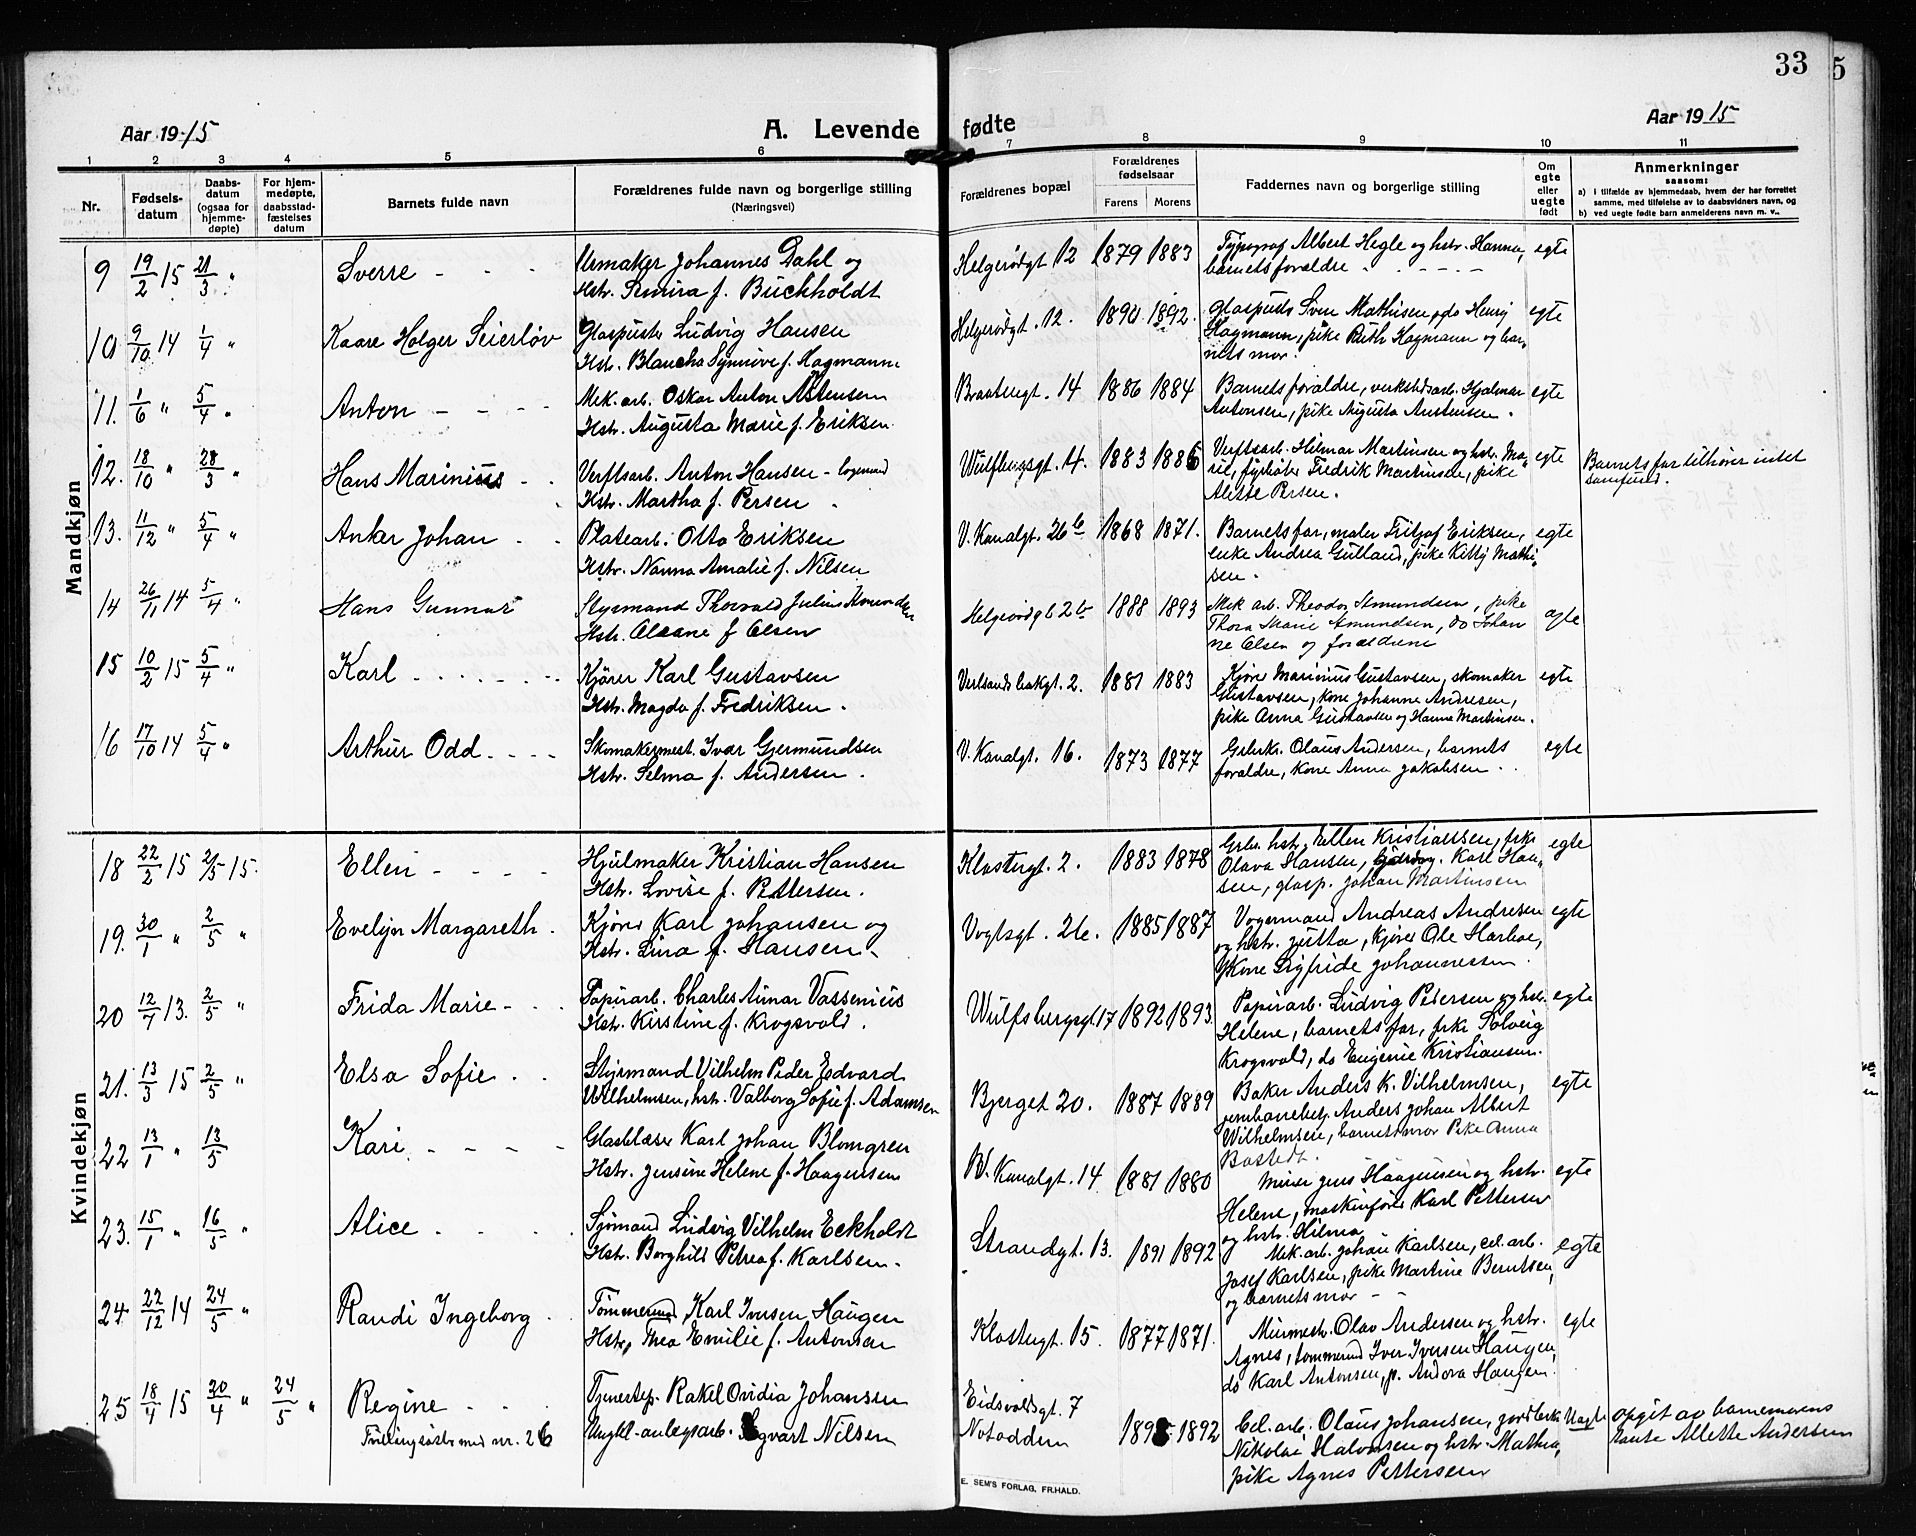 33
5
Aar 1915
A. Levende fødte
Aar 1915
1 2 3 4 5 6 7 8 9 10 11
Nr.
Fødsels-
datum
Daabs-
datum
(ogsaa for
hjemme-
døpte)
For hjem-
medøpte,
daabsstad-
fæstelses
datum
Barnets fulde navn
Forældrenes fulde navn og borgerlige stilling
(Næringsvei)
Forældrenes bopæl
Forældrenes
fødselsaar
Farens Morens
Faddernes navn og borgerlige stilling
Om
egte
eller
uegte
født
Anmerkninger
saasom:
a) i tilfælde av hjemmedaab, hvem der har forrettet
samme, med tilføielse av to daabsvidners navn, og
b) ved uegte fødte barn anmelderens navn m. v.
Mandkjøn
9 19/2 15 21/3 " Sverre - - -
Urmaker Johannes Dahl og
Hstr. f. Buckholdt
Helgerødgt 12 1879 1883
Typograf Albert Hegle og hstr. Hanna,
barnets foraldre
egte
10 9/10 14 1/4 " Kaare Holger Seierløv
Glaspuster Ludvig Hansen
Hstr. Blancha Synnøve f. Hagmann
Helgerødgt. 12. 1890 1892.
Glaspuds Sven Mathisen, do Henry
Hagmann, pike Ruth Hagmann og bar-
nets mor.
egte
11. 1/6 " 5/4 " Anton - - - -
Mek. arb. Oskar Anton Astensen
Hstr. Augusta Marie f. Eriksen
Braatengt. 14 1886 1884
Barnets foraldre, verkstedsarb. Hjalmar
Antonsen, pike Augusta Austensen.
egte
12. 18/10 " 28/3 " Hans Marinius - -
Verftsarb. Anton Hansen - logmand
Hstr. Martha f. Persen
Wulfbergsgt. 4. 1883 1886
Verftsarb. Hilmar Martinsen og hstr. Ma-
rie, fyrbøter Fredrik Martinsen, pike
Alette Persen.
egte
Barnets far tilhører intet
samfund.
13. 11/12 " 5/4 " Anker Johan - -
Platearb. Otto Eriksen
Hstr. Nanna Amalie f. Nilsen
V. Kanalgt. 26 b 1868 1871.
Barnets far, maler Fritjof Eriksen,
enke Andrea Gulland, pike Kitty Mathi-
sen.
egte
14 26/11 14 5/4 " Hans Gunnar
Styrmand Thorvald Julius Amundsen
Hstr. f Olsen
1888 1893
Mek arb. Theodor Amundsen, pike
Thora Marie Amundsen, do Johan
ne Olsen og forældrene
egte
15 10/2 15 5/4 " Karl - - - -
Kjører Karl Gustavsen
Hstr. Magda f. Fredriksen.
1881 1883
Kjører Marinius Gustavsen, skomaker
Gustavsen, kone Johanne Andresen,
pike Anna Gustavsen og Hanna Martinsen.
egte
16 17/10 14 5/4 " Arthur Odd - - - -
Skomakermest. Ivar Gjermundsen
Hstr. Selma f. Andersen.
V. Kanalgt. 16. 1873 1877
Olaus Andersen, barnets
foraldre, kone Anna Jakobsen
egte
Kvindekjøn
18 22/2 15 2/5 15. Ellen - - - -
Hjulmaker Kristian Hansen
Hstr. Lovise f. Pettersen.
Klostergt. 2. 1883 1878
hstr. Ellen Kristiansen, pike
Olava Hansen, Karl Han-
sen, glasp. Johan Martinsen
egte
19. 30/1 " 2/5 " Evelyn Margareth.
Kjører Karl Johansen og
Hstr. Lina f. Hansen
Vogtsgt. 1885 1887
Vognmand Andreas Andresen
og hstr. Jutta, kjører Ole Harboe,
Kone Sigfride Johannessen.
egte
20 12/7 13. 2/5 " Frida Marie - -
Papirarb. Charles Vassenius
Hstr. Kirstine f. Krogsvold.
Wulfsbergsgt. 17 1892 1893.
Papirarb. Ludvig Petersen og hstr.
Helene, barnets far, pike Solveig
Krogsvold, do Eugenie Kristiansen.
egte
21. 13/3 15 2/5 " Elsa Sofie - -
Styrmand Vilhelm Peder Edvard
Wilhelmsen, hstr. Valborg Sofie f. Adamsen
Bjerget 20. 1887 1889
Baker Anders K. Vilhelmsen,
Anders Johan Albert
Wilhelmsen, barnets mor Pike Anna
Bastedt.
egte
22 13/1 " 13/5 Kari - - - -
Glasblæser Karl Johan Blomgren
Hstr. Jensine Helene f. Haagensen
V. Kanalgt. 14 1881 1880
Murer Jens Haagensen og hstr.
Helene, maskinfører Karl Pettersen
og hstr. Hilma
egte
23. 15/1 " 16/5 " Alice - - - -
Sjømand Ludvig Vilhelm Eckholdt
Hstr. Borghild Petrea f. Karlsen.
Strandgt. 13. 1891 1892
Mek. arb. Johan Karlsen, cel. arb.
Josef Karlsen, pike Martine Berntsen,
og barnets mor - -
egte
24. 22/12 14 24/5 " Randi Ingeborg
Tømmermd Karl Iversen Haugen
Hstr, Thea Emilie f. Antonsen
Klostergt. 15. 1877 1871.
Murmestr. Olav Andersen og hstr.
Agnes, tømmermd Iver Iversen Haugen,
do Karl Antonsen, p. Andora Haugen.
egte
25 18/4 15 20/4 " 24/5 " Regine - - -
Tvillingsøster med nr. 26
Tjenestep. Rakel Ovidia Johansen
Ungkl. anlegsarb. Sigvart Nilsen
Eidsvoldsgt. 7
Notodden
1895 1892
Cel. arb. Olaus Johansen, jordbruker
Nikolai Halvorsen og hstr. Mathea,
pike Agnes Pettersen
Uegte
opgit av barnemorens
tante Allette Andersen
E. SEM'S FORLAG, FR.HALD.